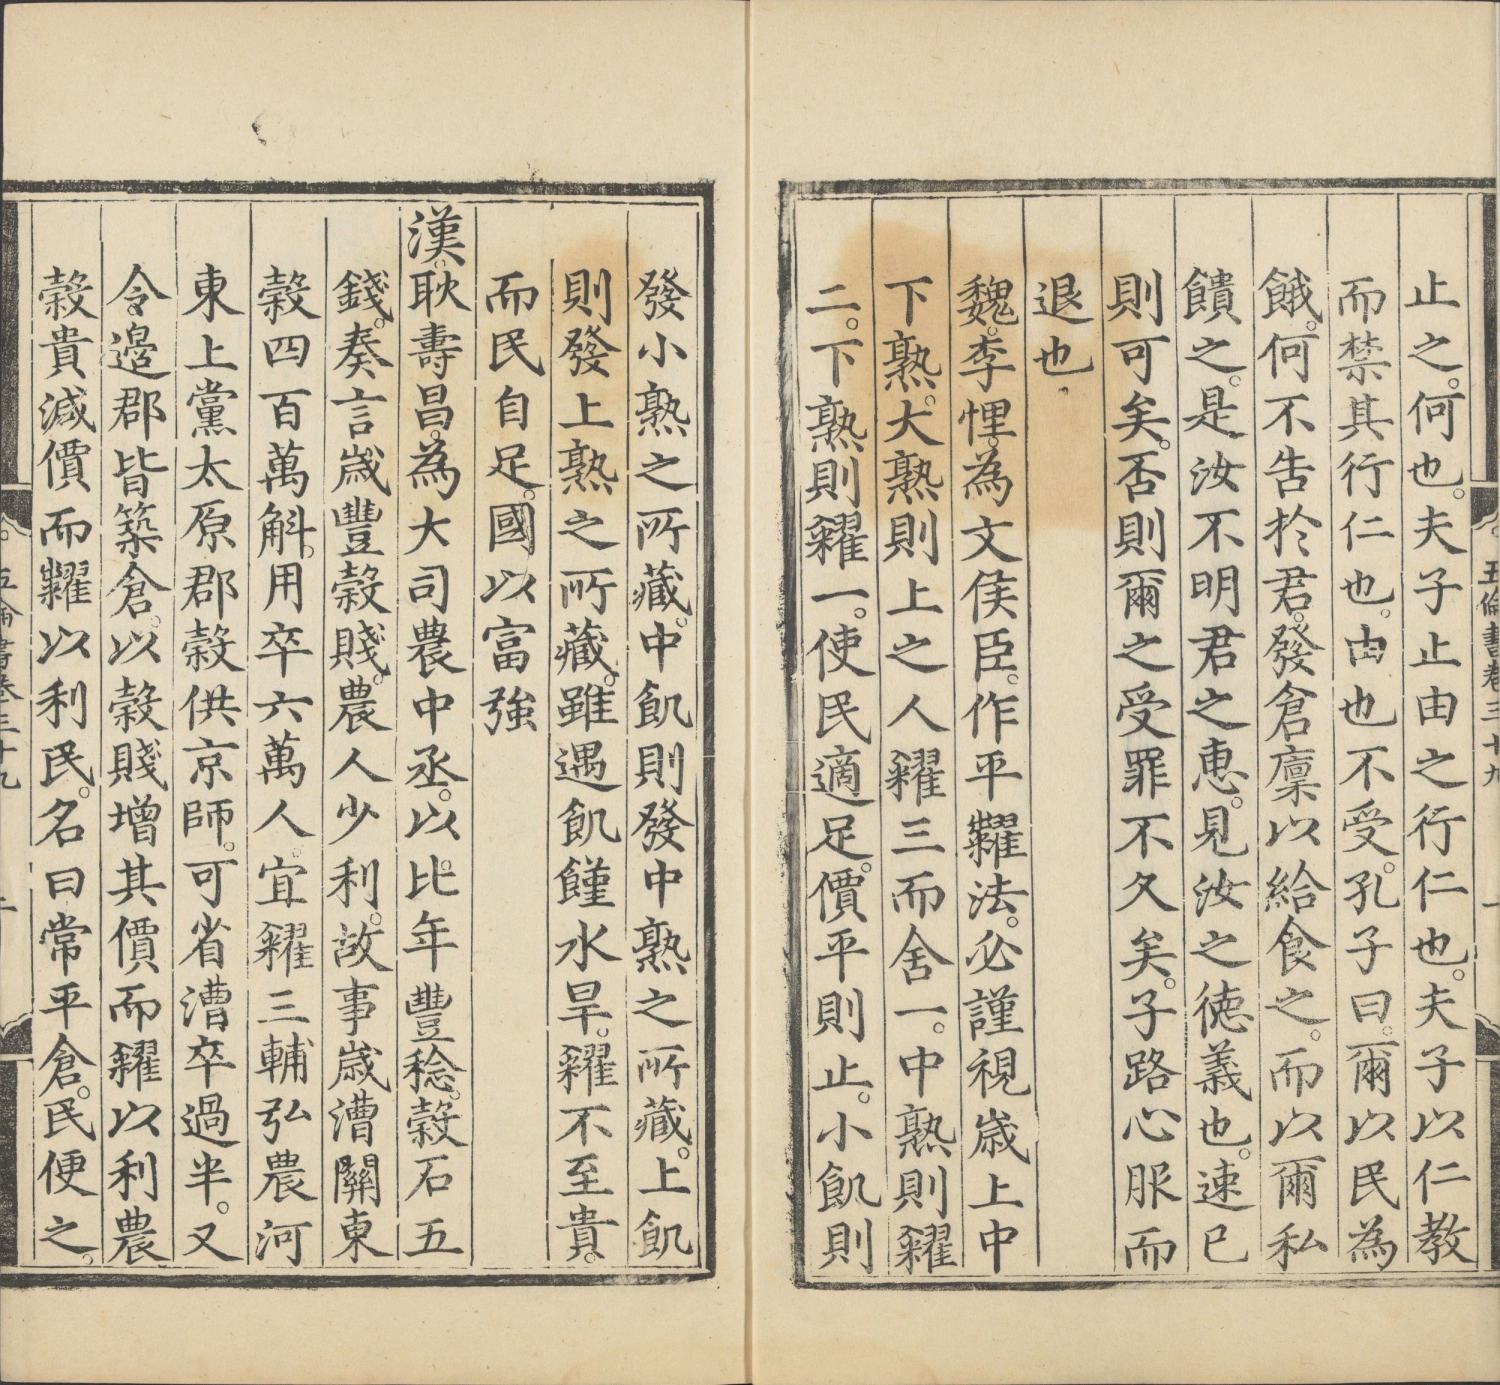 五倫書卷三十九
止之。何也。夫子止由之行仁也。夫子以仁教
而禁其行仁也。由也不受。孔子曰。爾以民為
餓。何不告於君。發倉廩以給食之。而以爾私
饋之。是汝不明君之惠。見汝之德義也。速已
則可矣。否則爾之受罪不久矣。子路心服而
退也。
魏。李悝。為文侯臣。作平糶法。必謹視歲上中
下熟。大熟則上之人糴三而舍一。中熟則糴
二。下熟則糴一。使民適足。價平則止。小飢則
發小熟之所藏。中飢則發中熟之所藏。上飢
則發上熟之所藏。雖遇飢饉水旱。糴不至貴。
而民自足。國以富強
漢。耿壽昌。為大司農中丞。以比年豐稔。穀石五
錢。奏言歲豐穀賤。農人少利。故事歲漕關東
穀四百萬斛。用卒六萬人。宜糴三輔弘農河
東上黨太原郡穀供京師。可省漕卒過半。又
令邊郡皆築倉。以穀賤增其價而糴以利農
穀貴減價而糶以利民。名曰常平倉。民便之。
五倫書卷三十九